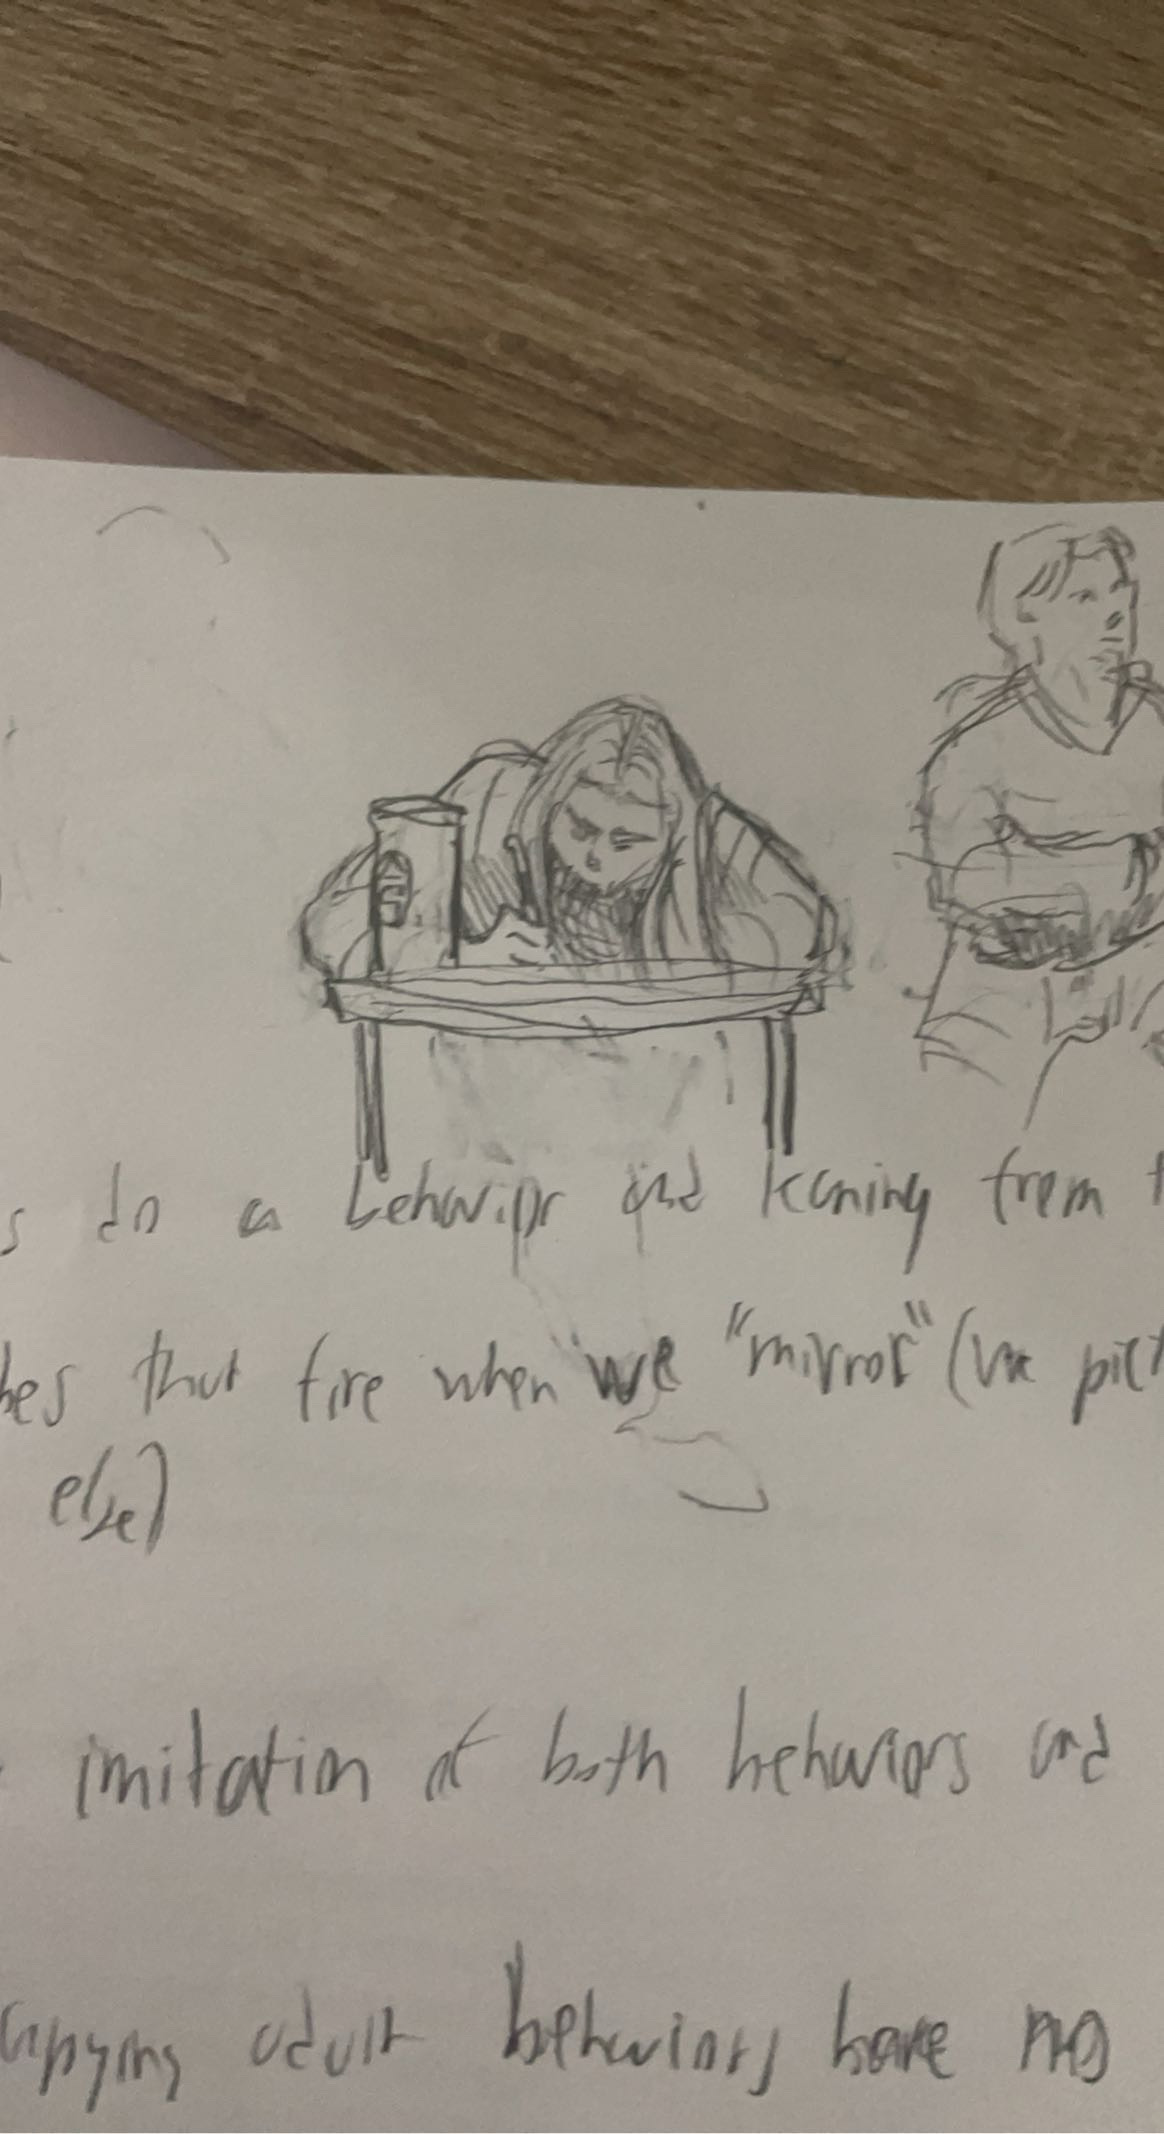 s do a behavior and learning from t
hes that fire when we "mirror" (we pict
else)
imitation of both behaviors and
copying adult behaviors have no